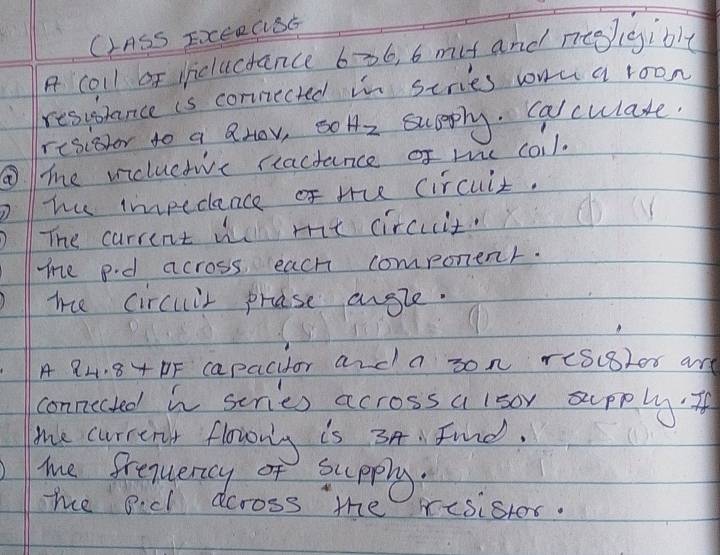 CLASS EXCERCISE
A coil of inductance 636,6 mH and negligible
resistance is connected in series with a 100Ω
resistor to a 240V, 50Hz supply. Calculate.
(a) The inductive reactance of the coil.
The impedance of the circuit.
The current in the circuit.
The p.d across each component.
The circuit phase angle.
A 24.87 μF capacitor and a 30Ω resistor are
connected in series across a 150V supply. If
the current flowing is 3A. Find.
The frequency of supply.
The p.d across the resistor.